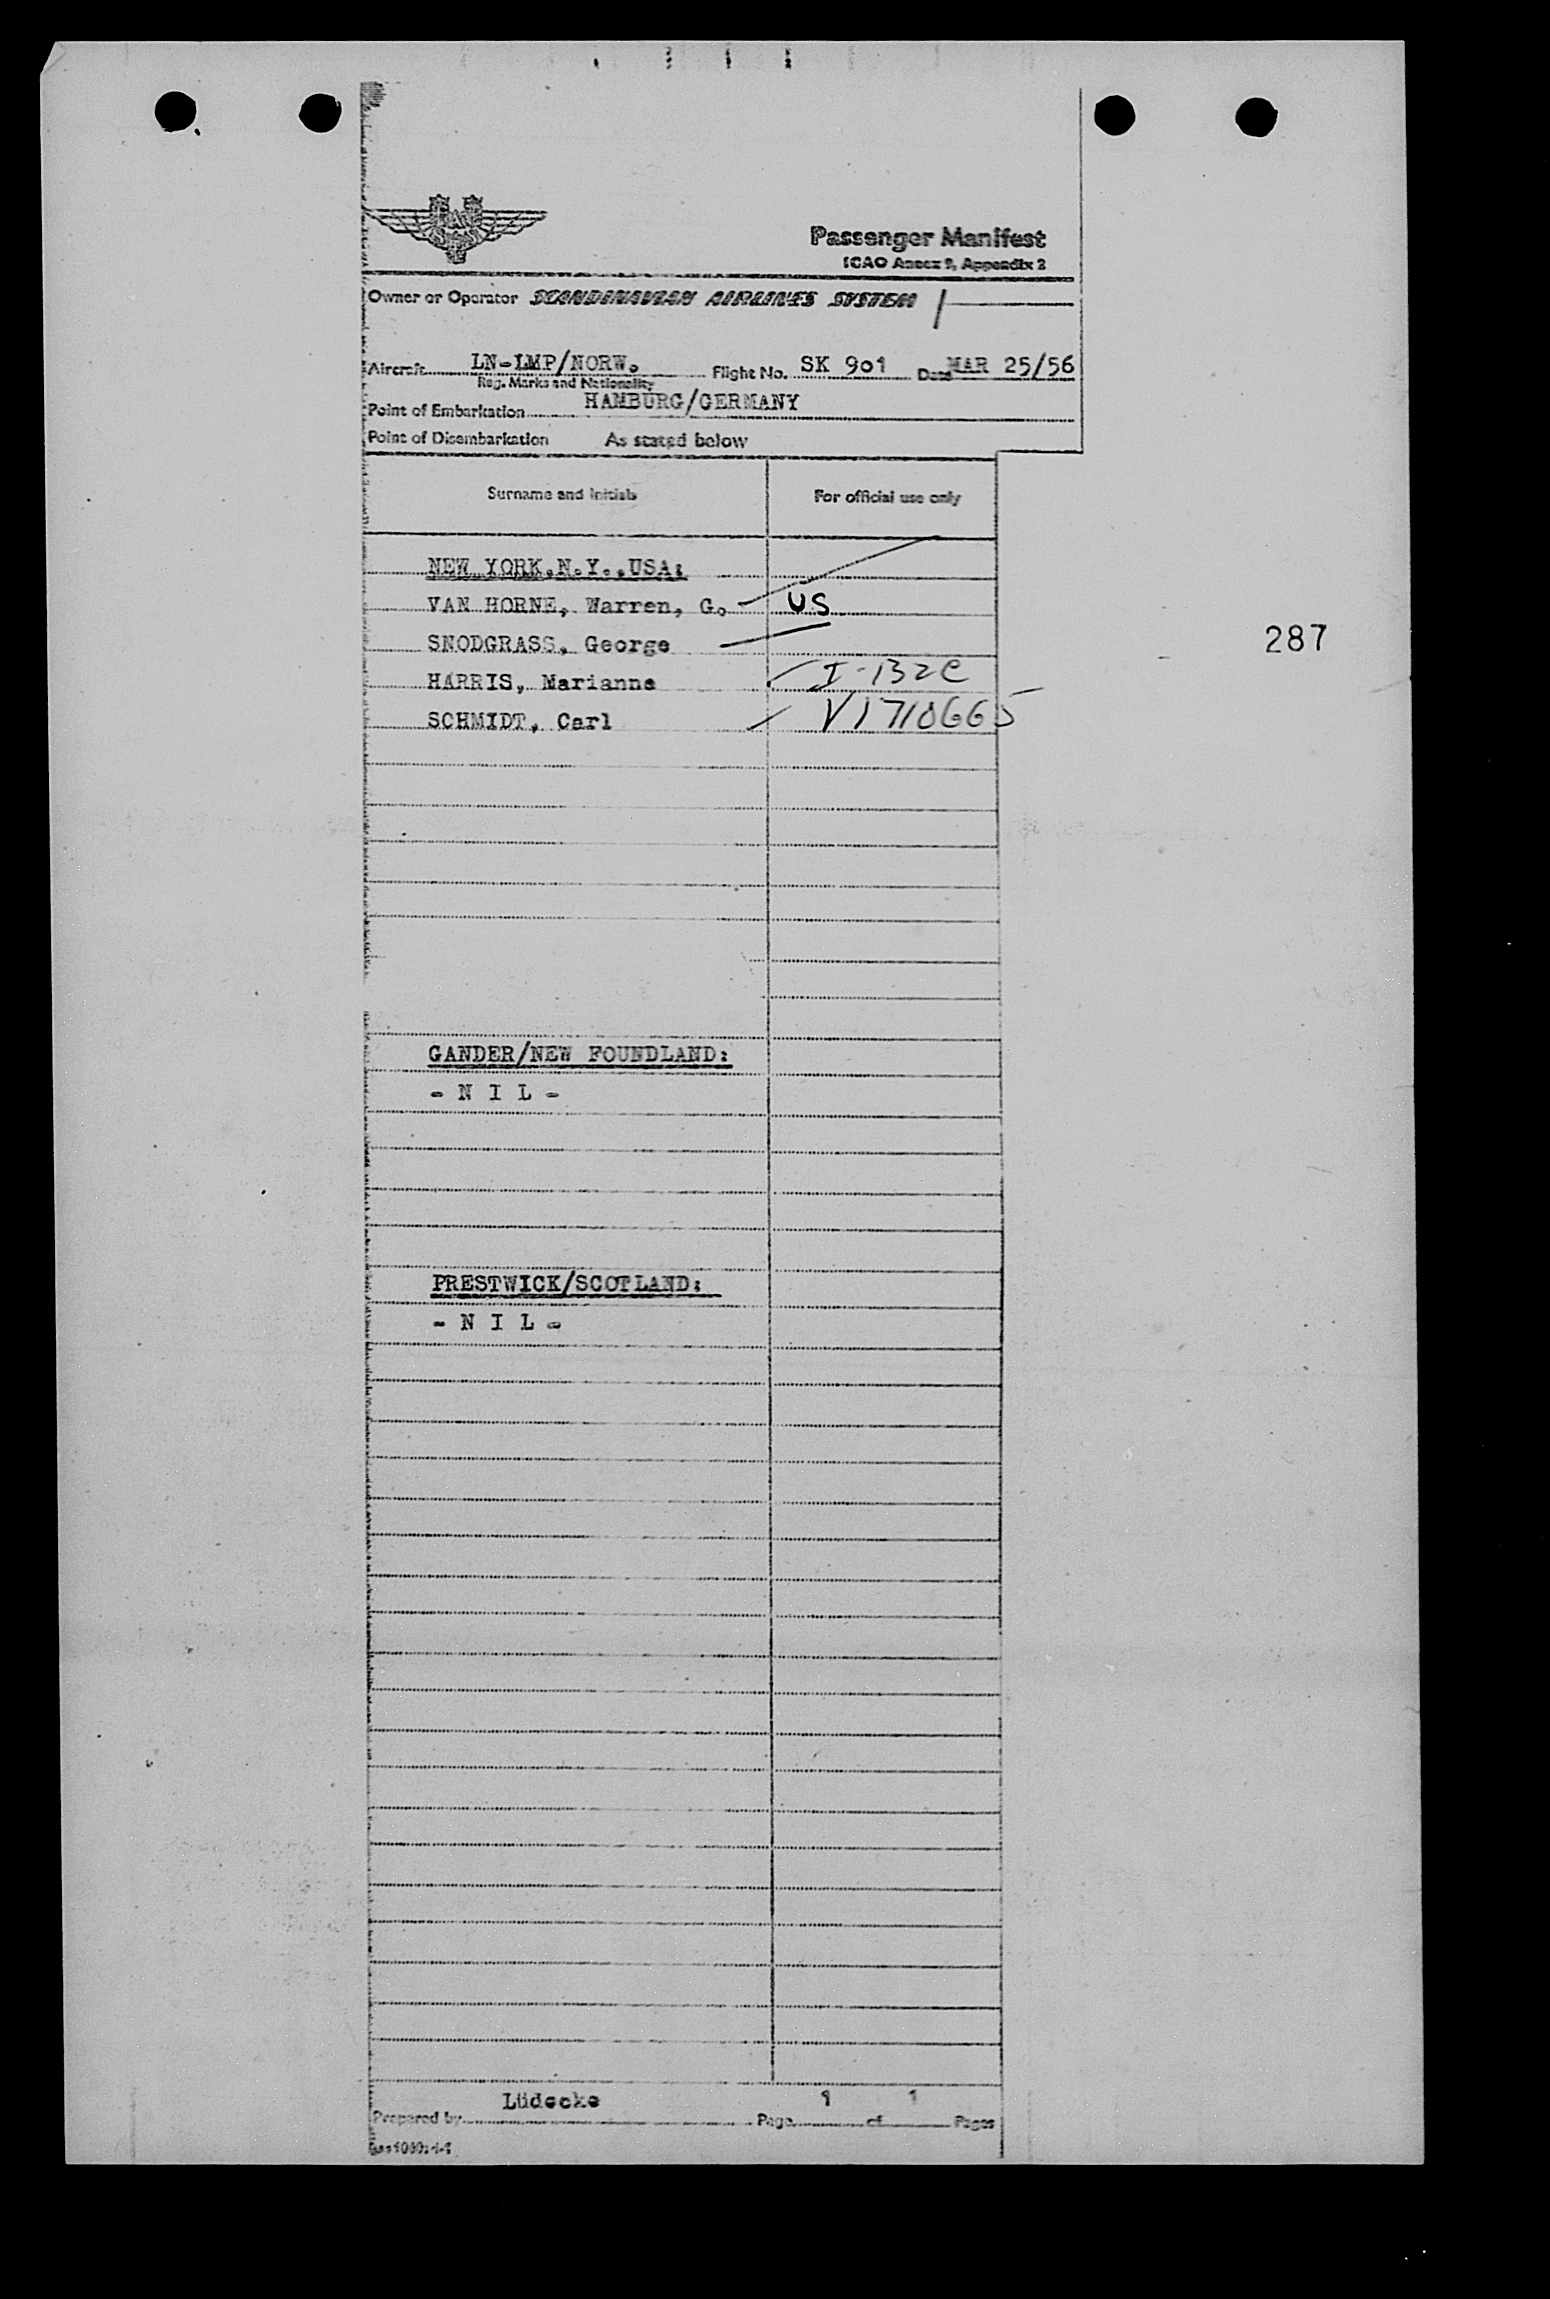 SAS
Passenger Manifest
ICAO Annex 9, Appendix 2
Owner or Operator SCANDINAVIAN AIRLINES SYSTEM
Aircraft LN-LMP/NORW. Flight No. SK 901 Date MAR 25/56
Reg. Marks and Nationality
Point of Embarkation HAMBURG/GERMANY
Point of Disembarkation As stated below
Surname and Initials For official use only
NEW YORK,N.Y.,USA:
VAN HORNE, Warren, G. US
SNODGRASS, George
287
HARRIS, Marianne I-132C
SCHMIDT, Carl V1710665
GANDER/NEW FOUNDLAND:
- N I L -
PRESTWICK/SCOTLAND:
- N I L -
Lüdecke 1 1
Prepared by Page of Pages